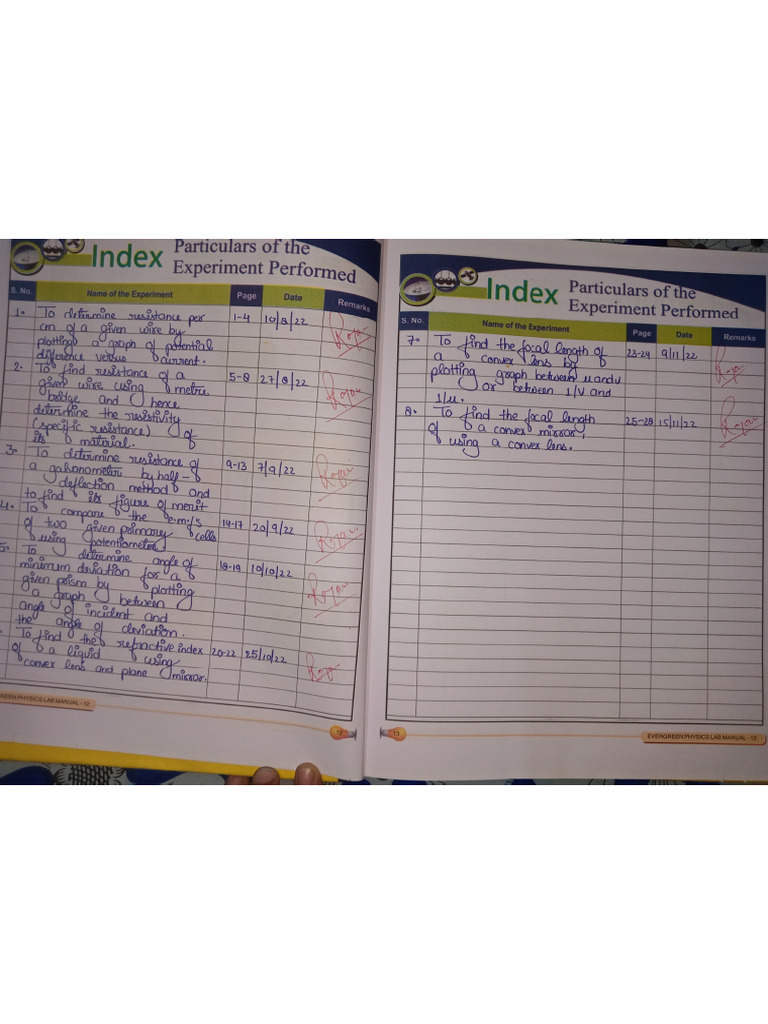 Index Particulars of the
Experiment Performed
S. No. Name of the Experiment Page Date Remarks
1. To determine resistance per 1-4 10/8/22
cm of a given wire by
plotting a graph of potential
difference versus current.
2. To find resistance of a 5-8 27/8/22
given wire using metre
bridge and hence
determine the resistivity
(specific resistance) of
its material.
3. To determine resistance of 9-13 7/9/22
a galvanometer by half-
deflection method and
to find its figure of merit
4. To compare the e.m.f's 14-17 20/9/22
of two given primary cells
using potentiometer
5. To determine angle of
minimum deviation for a 18-19 10/10/22
given prism by plotting
a graph between
angle of incident and
the angle of deviation.
To find the refractive index 20-22 25/10/22
of a liquid using
convex lens and plane mirror.
GREEN PHYSICS LAB MANUAL - 12
12
Index Particulars of the
Experiment Performed
S. No. Name of the Experiment Page Date Remarks
7. To find the focal length of 23-24 9/11/22
a convex lens by
plotting graph between u and v
or between 1/v and
1/u.
8. To find the focal length 25-28 15/11/22
of a convex mirror,
using a convex lens.
13
EVERGREEN PHYSICS LAB MANUAL - 12